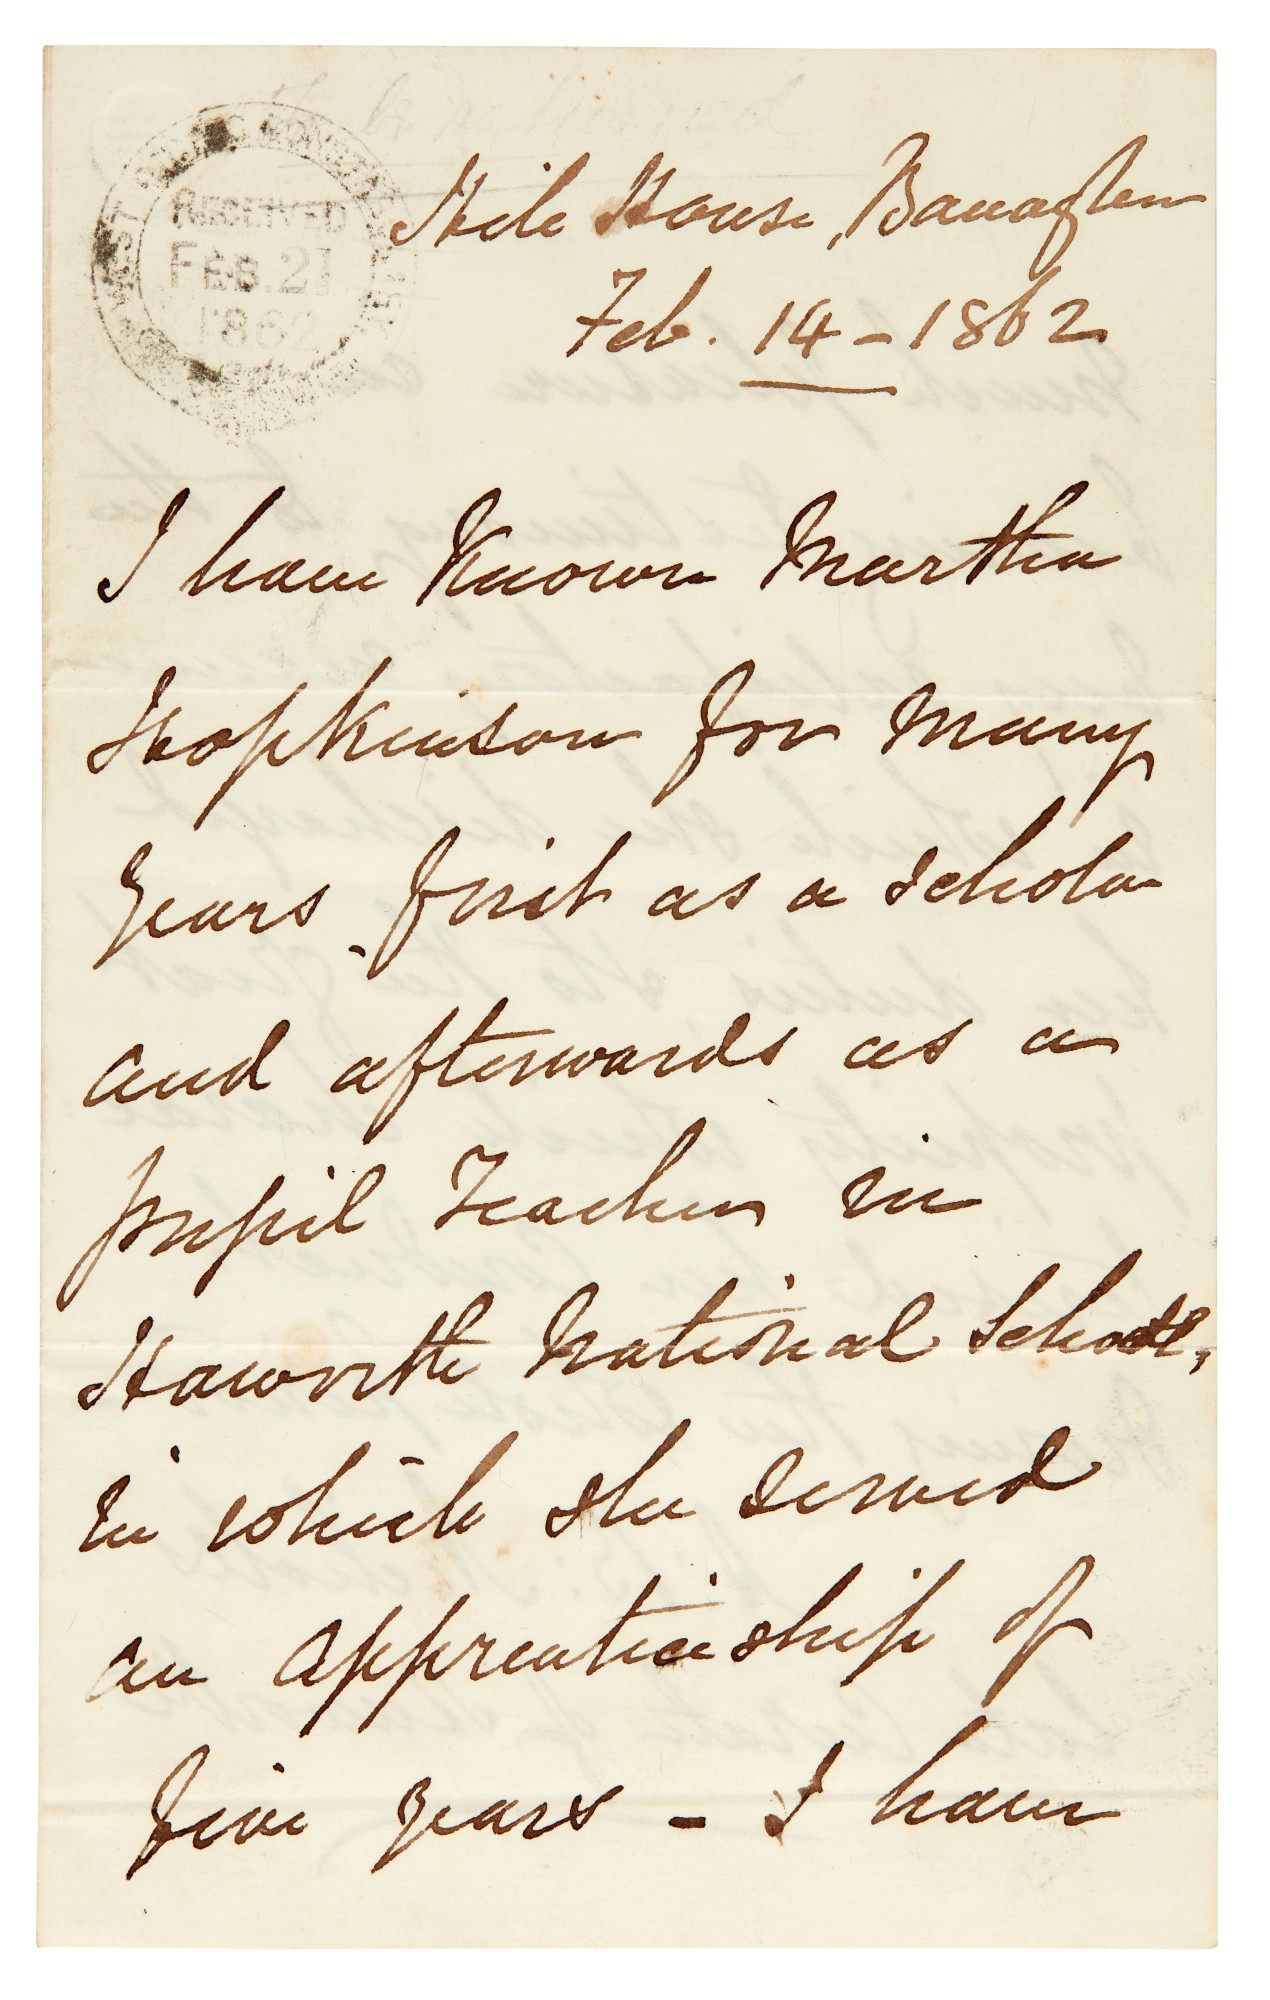 RECEIVED
FEB. 21
1862
Hill House, Banagher
Feb. 14 - 1862
I have Known Martha
Hopkinson for many
years, first as a scholar
and afterwards as a
pupil Teacher in
Haworth National School,
in which she served
an apprenticeship of
five years - I have